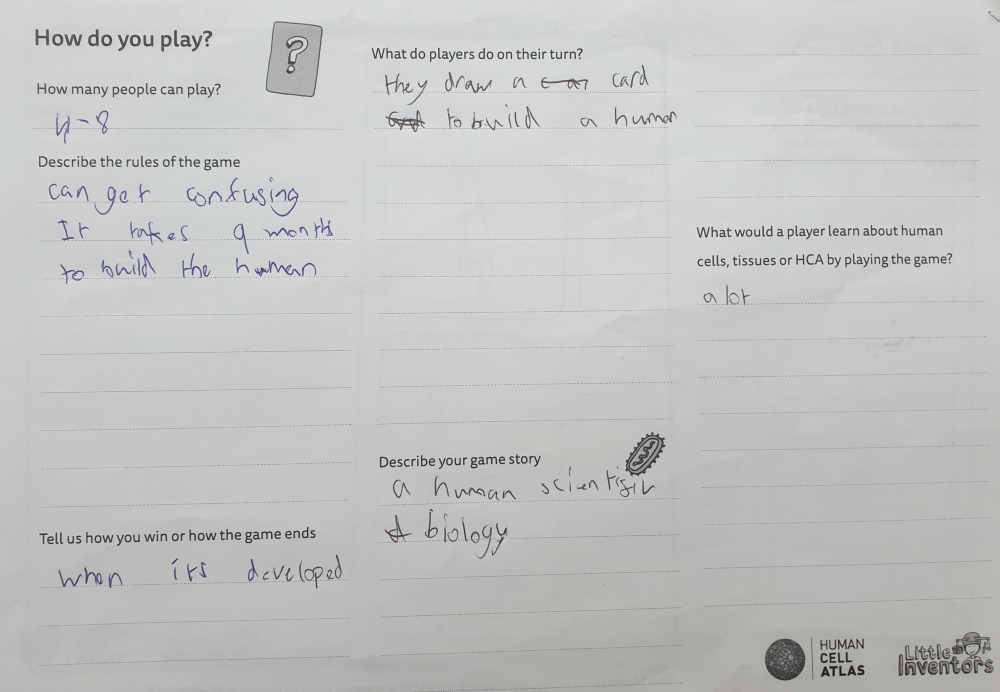 How do you play?
How many people can play?
4-8
Describe the rules of the game
can get confusing
It takes 9 months
to build the human
Tell us how you win or how the game ends
when its developed
What do players do on their turn?
they draw a card
to build a human
Describe your game story
a human
biology
What would a player learn about human
cells, tissues or HCA by playing the game?
a lot
HUMAN
CELL
ATLAS
Little
Inventors